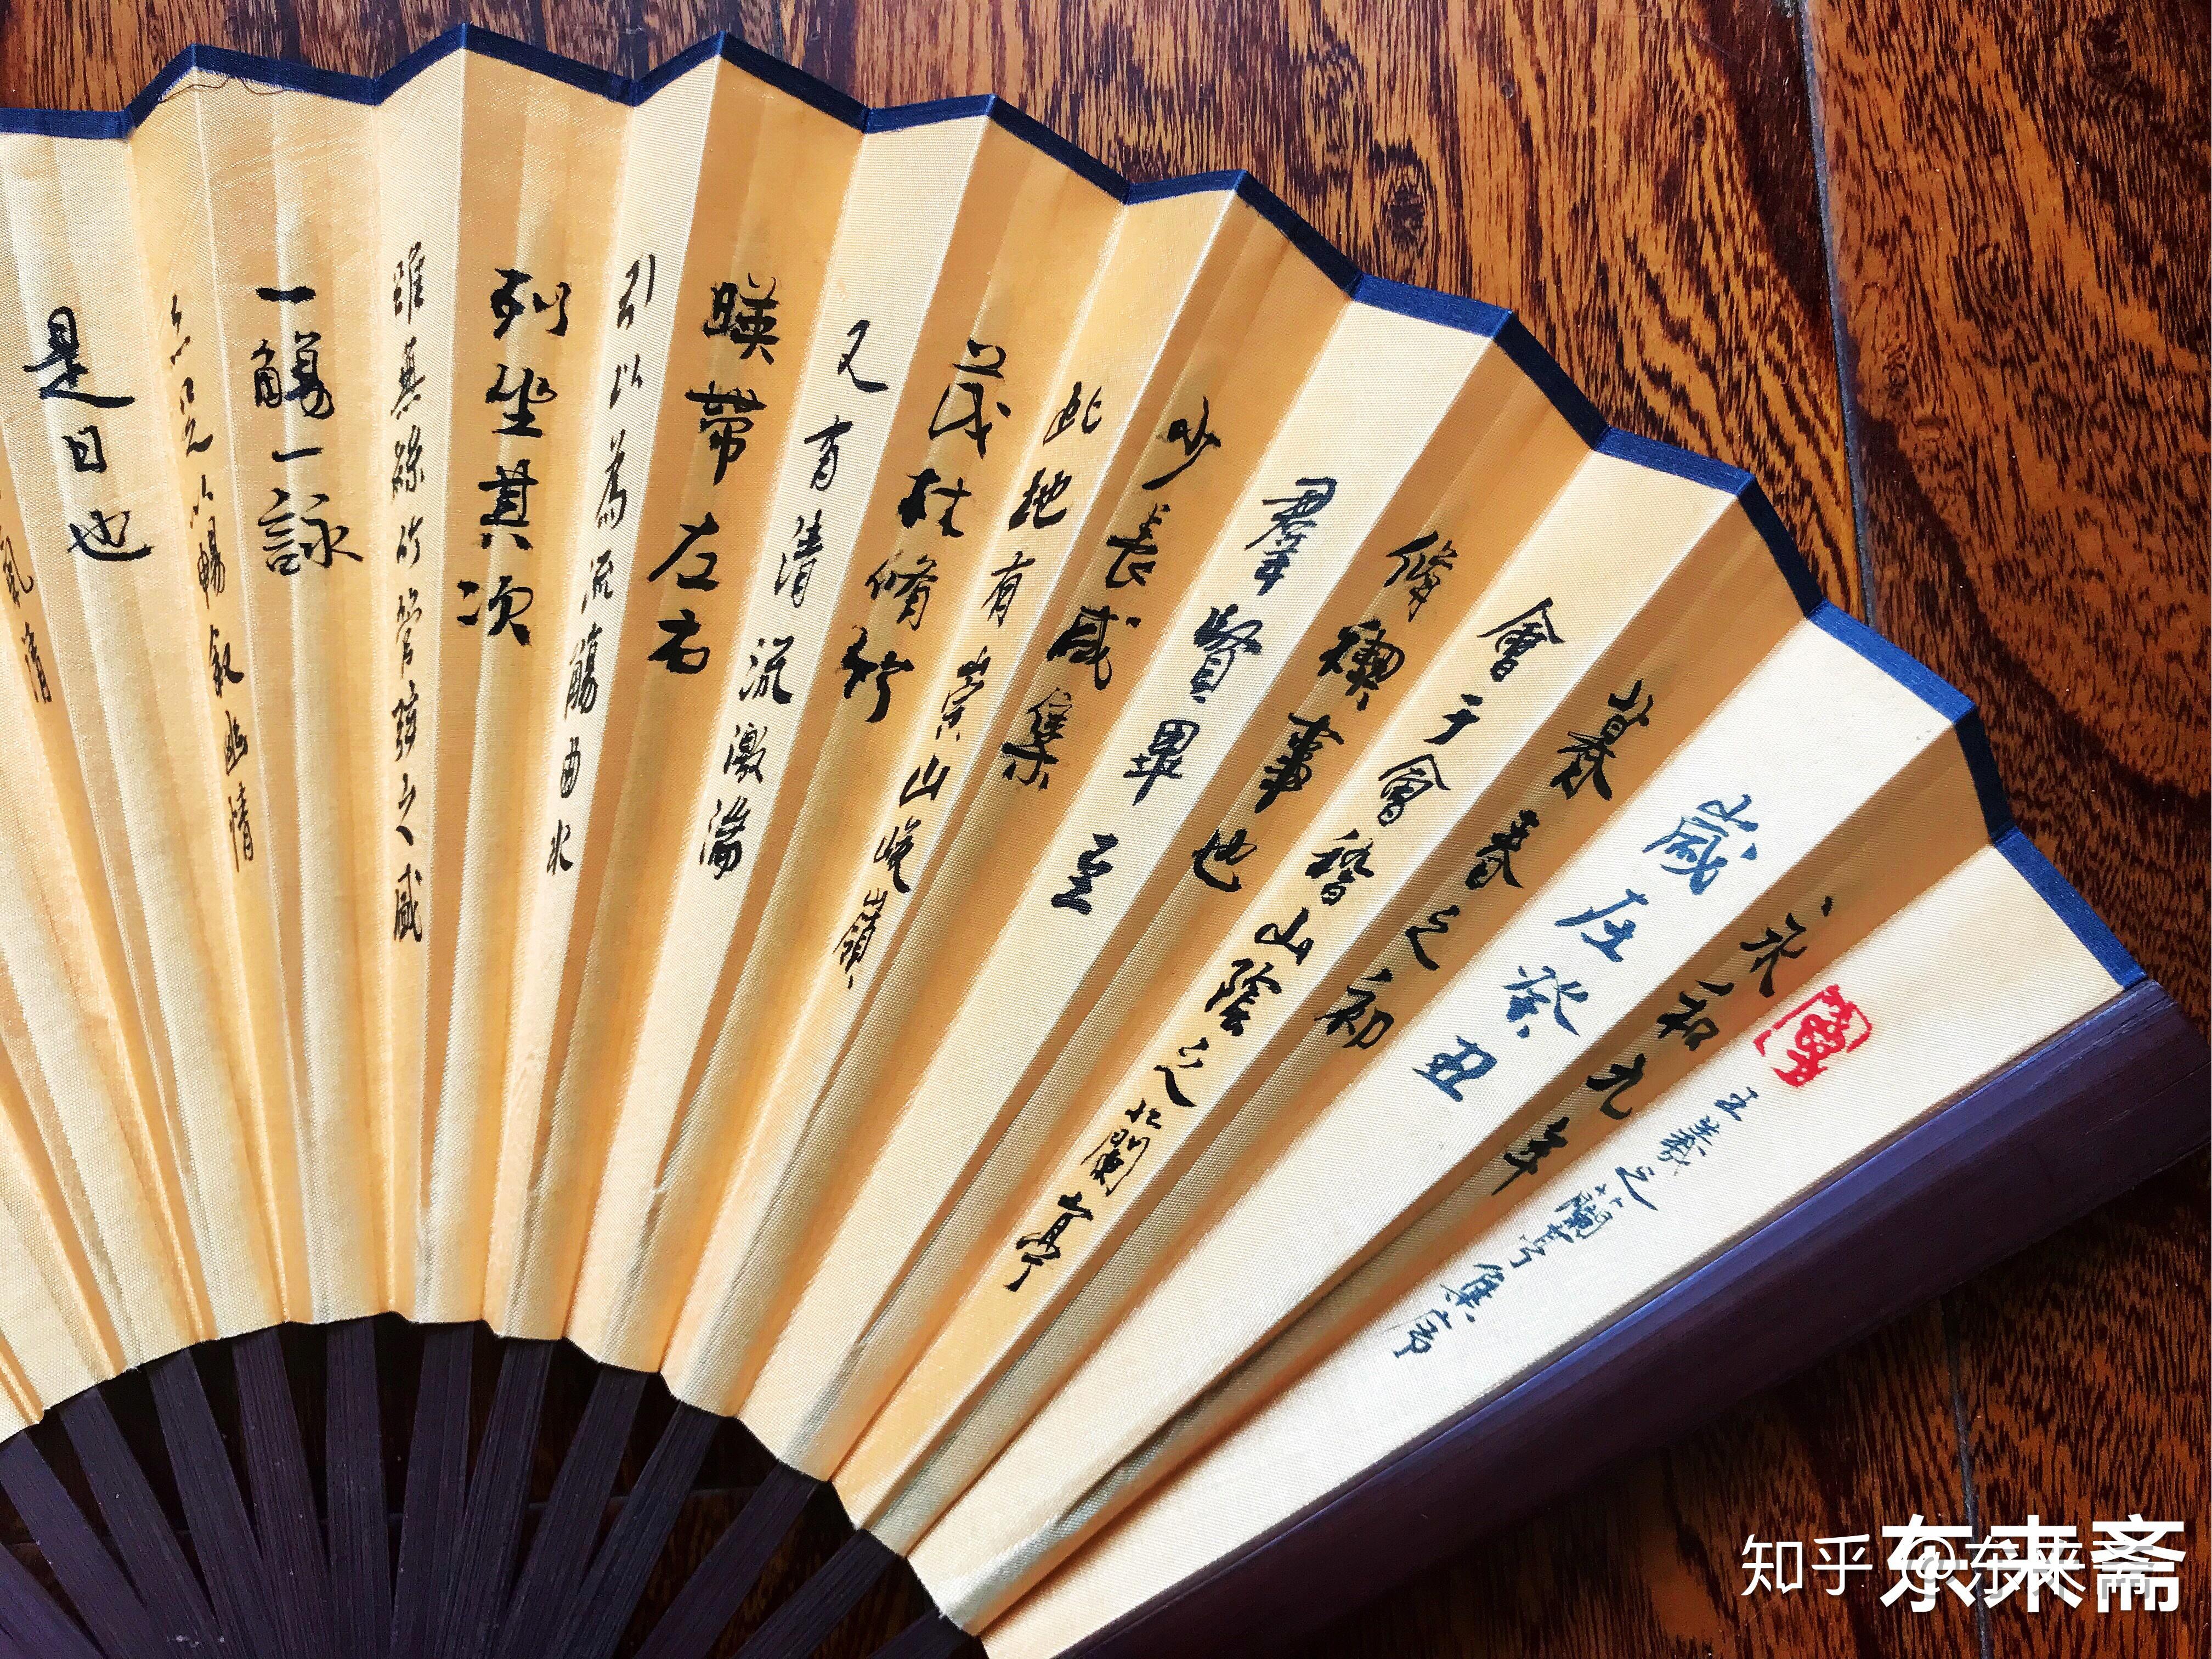 王羲之蘭亭集序
永和九年
歲在癸丑
暮春之初
會于會稽山陰之蘭亭
脩禊事也
羣賢畢至
少長咸集
此地有崇山峻嶺
茂林脩竹
又有清流激湍
暎帶左右
引以為流觴曲水
列坐其次
雖無絲竹管弦之盛
一觴一詠
亦足以暢叙幽情
是日也
氣清
知乎 @东来斋
东来斋